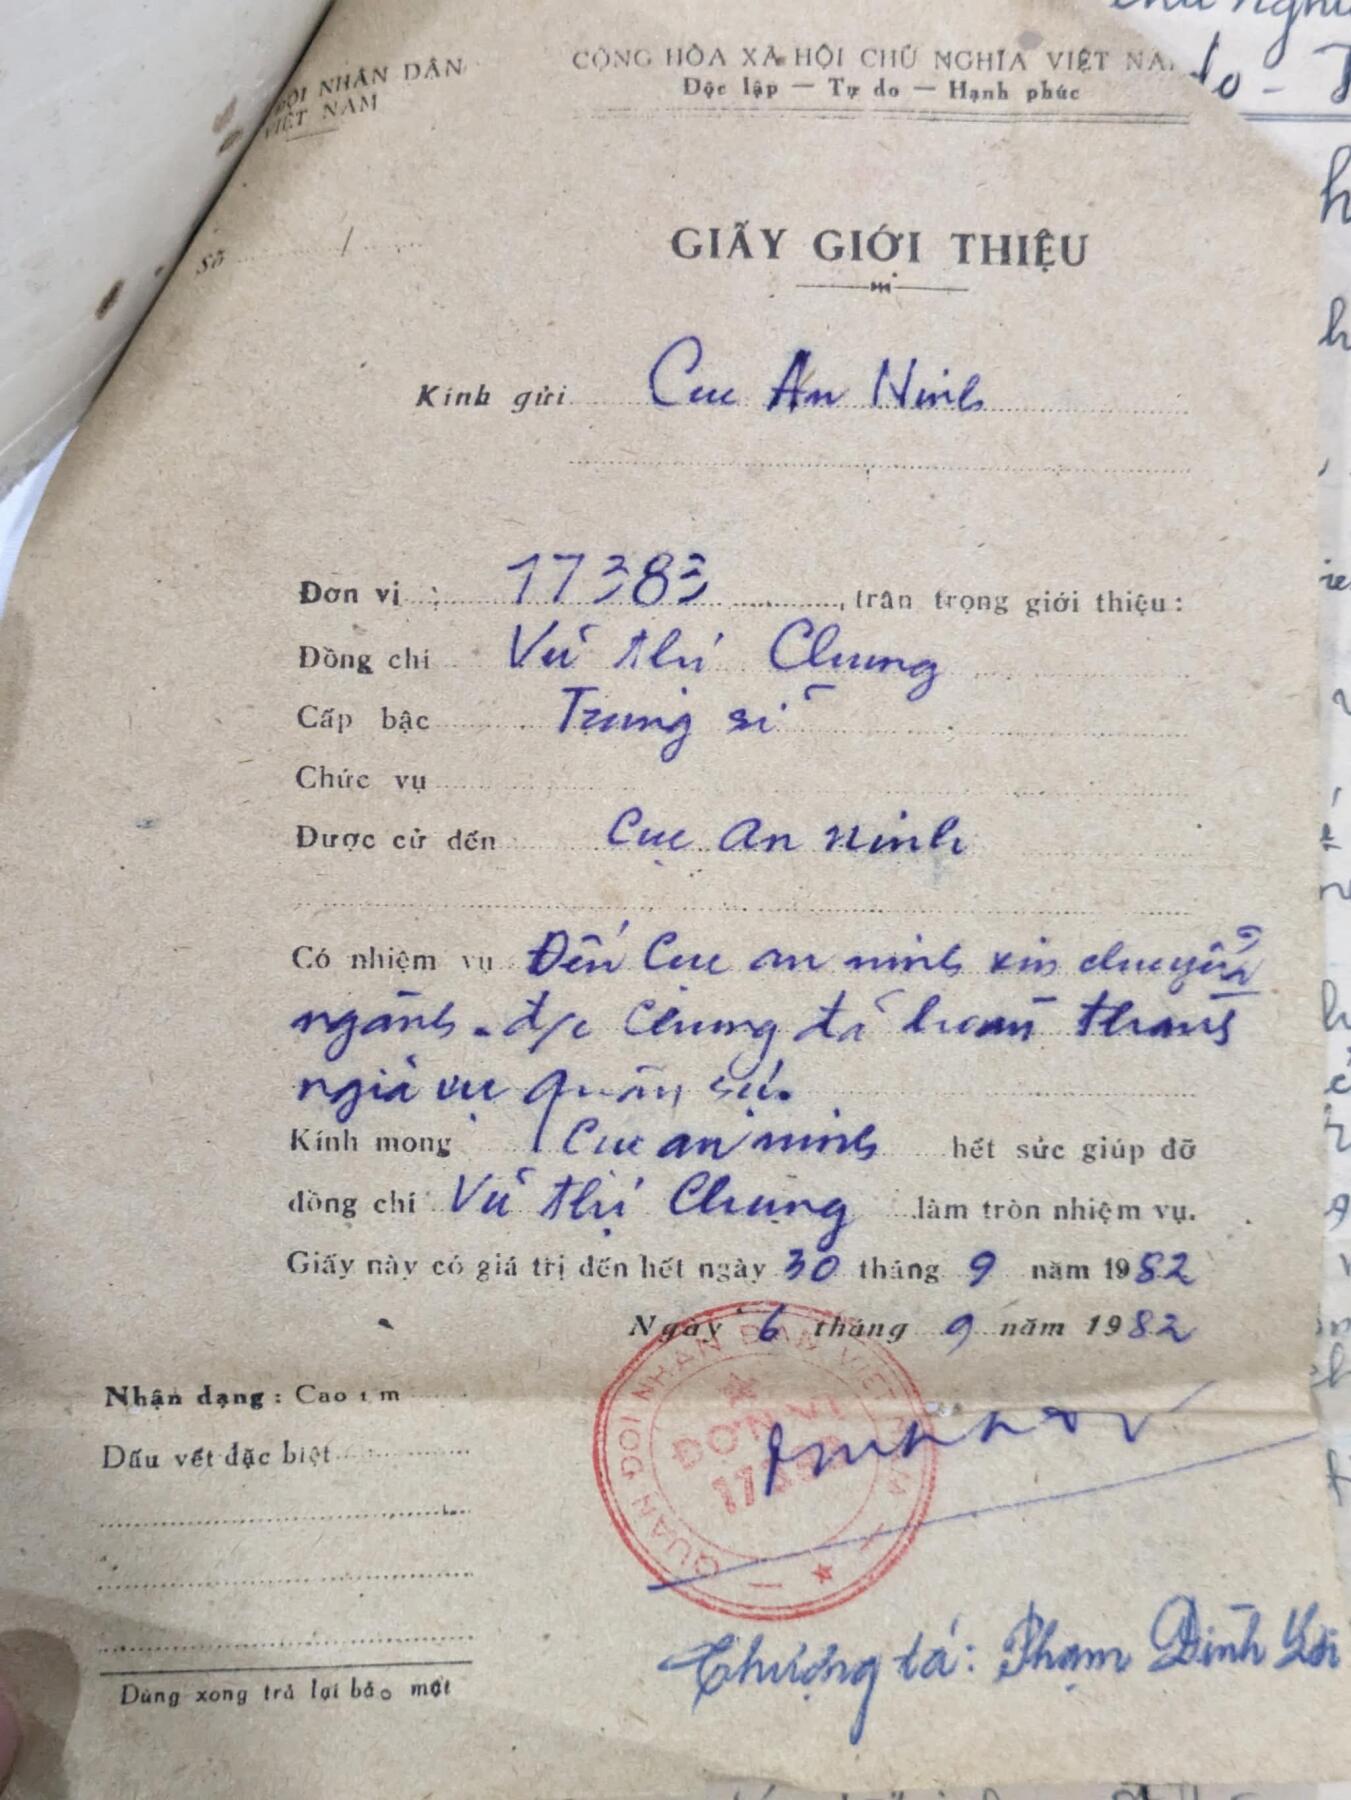 ĐỘI NHÂN DÂN
VIỆT NAM
CỘNG HÒA XÃ HỘI CHỦ NGHĨA VIỆT NA
Độc lập — Tự do — Hạnh phúc
Số ........ / ........
GIẤY GIỚI THIỆU
Kính gửi Cục An Ninh
Đơn vị : 17383 , trân trọng giới thiệu :
Đồng chí Vũ Thị Chung
Cấp bậc Trung sĩ
Chức vụ
Được cử đến Cục an ninh
Có nhiệm vụ Đến Cục an ninh xin chuyển
ngành. đ/c Chung đã hoàn thành
nghĩa vụ quân sự.
Kính mong Cục an ninh hết sức giúp đỡ
đồng chí Vũ Thị Chung làm tròn nhiệm vụ.
Giấy này có giá trị đến hết ngày 30 tháng 9 năm 1982
Ngày 6 tháng 9 năm 1982
QUÂN ĐỘI NHÂN DÂN VIỆT NAM
ĐƠN VỊ
17383
Nhận dạng : Cao 1 m
Dấu vết đặc biệt
Thượng tá: Phạm Đình
Dùng xong trả lại bảo mật